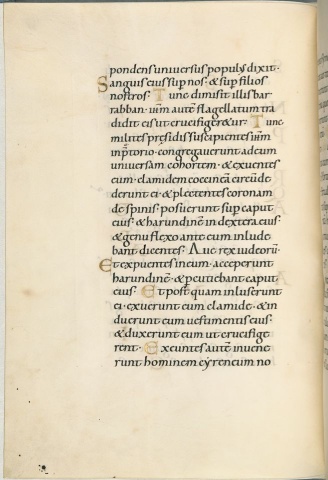 pondens universus populus dixit·
Sanguis eius sup nos· & sup filios
nostros· Tunc dimisit illis bar
rabban· ihm autē flagellatum tra
didit eis ut crucifiger&ur· Tunc
milites presidis suscipientes ihm
in p̄torio· congregauerunt ad eum
uniuersam cohortem· & exuentes
eum· clamidem coccineā circūde
derunt ei· & plectentes coronam
de spinis· posuerunt sup caput
eius· & harundinē in dextera eius·
& genu flexo ante eum inlude
bant dicentes· Aue rex iudeorū·
Et expuentes in eum· acceperunt
harundinē· & pcutiebant caput
eius· Et postquam inluserunt
ei· exuerunt eum clamide· & in
duerunt eum uestimentis eius·
& duxerunt eum ut crucifige
rent· Exeuntes autē inuene
runt hominem cyreneum no